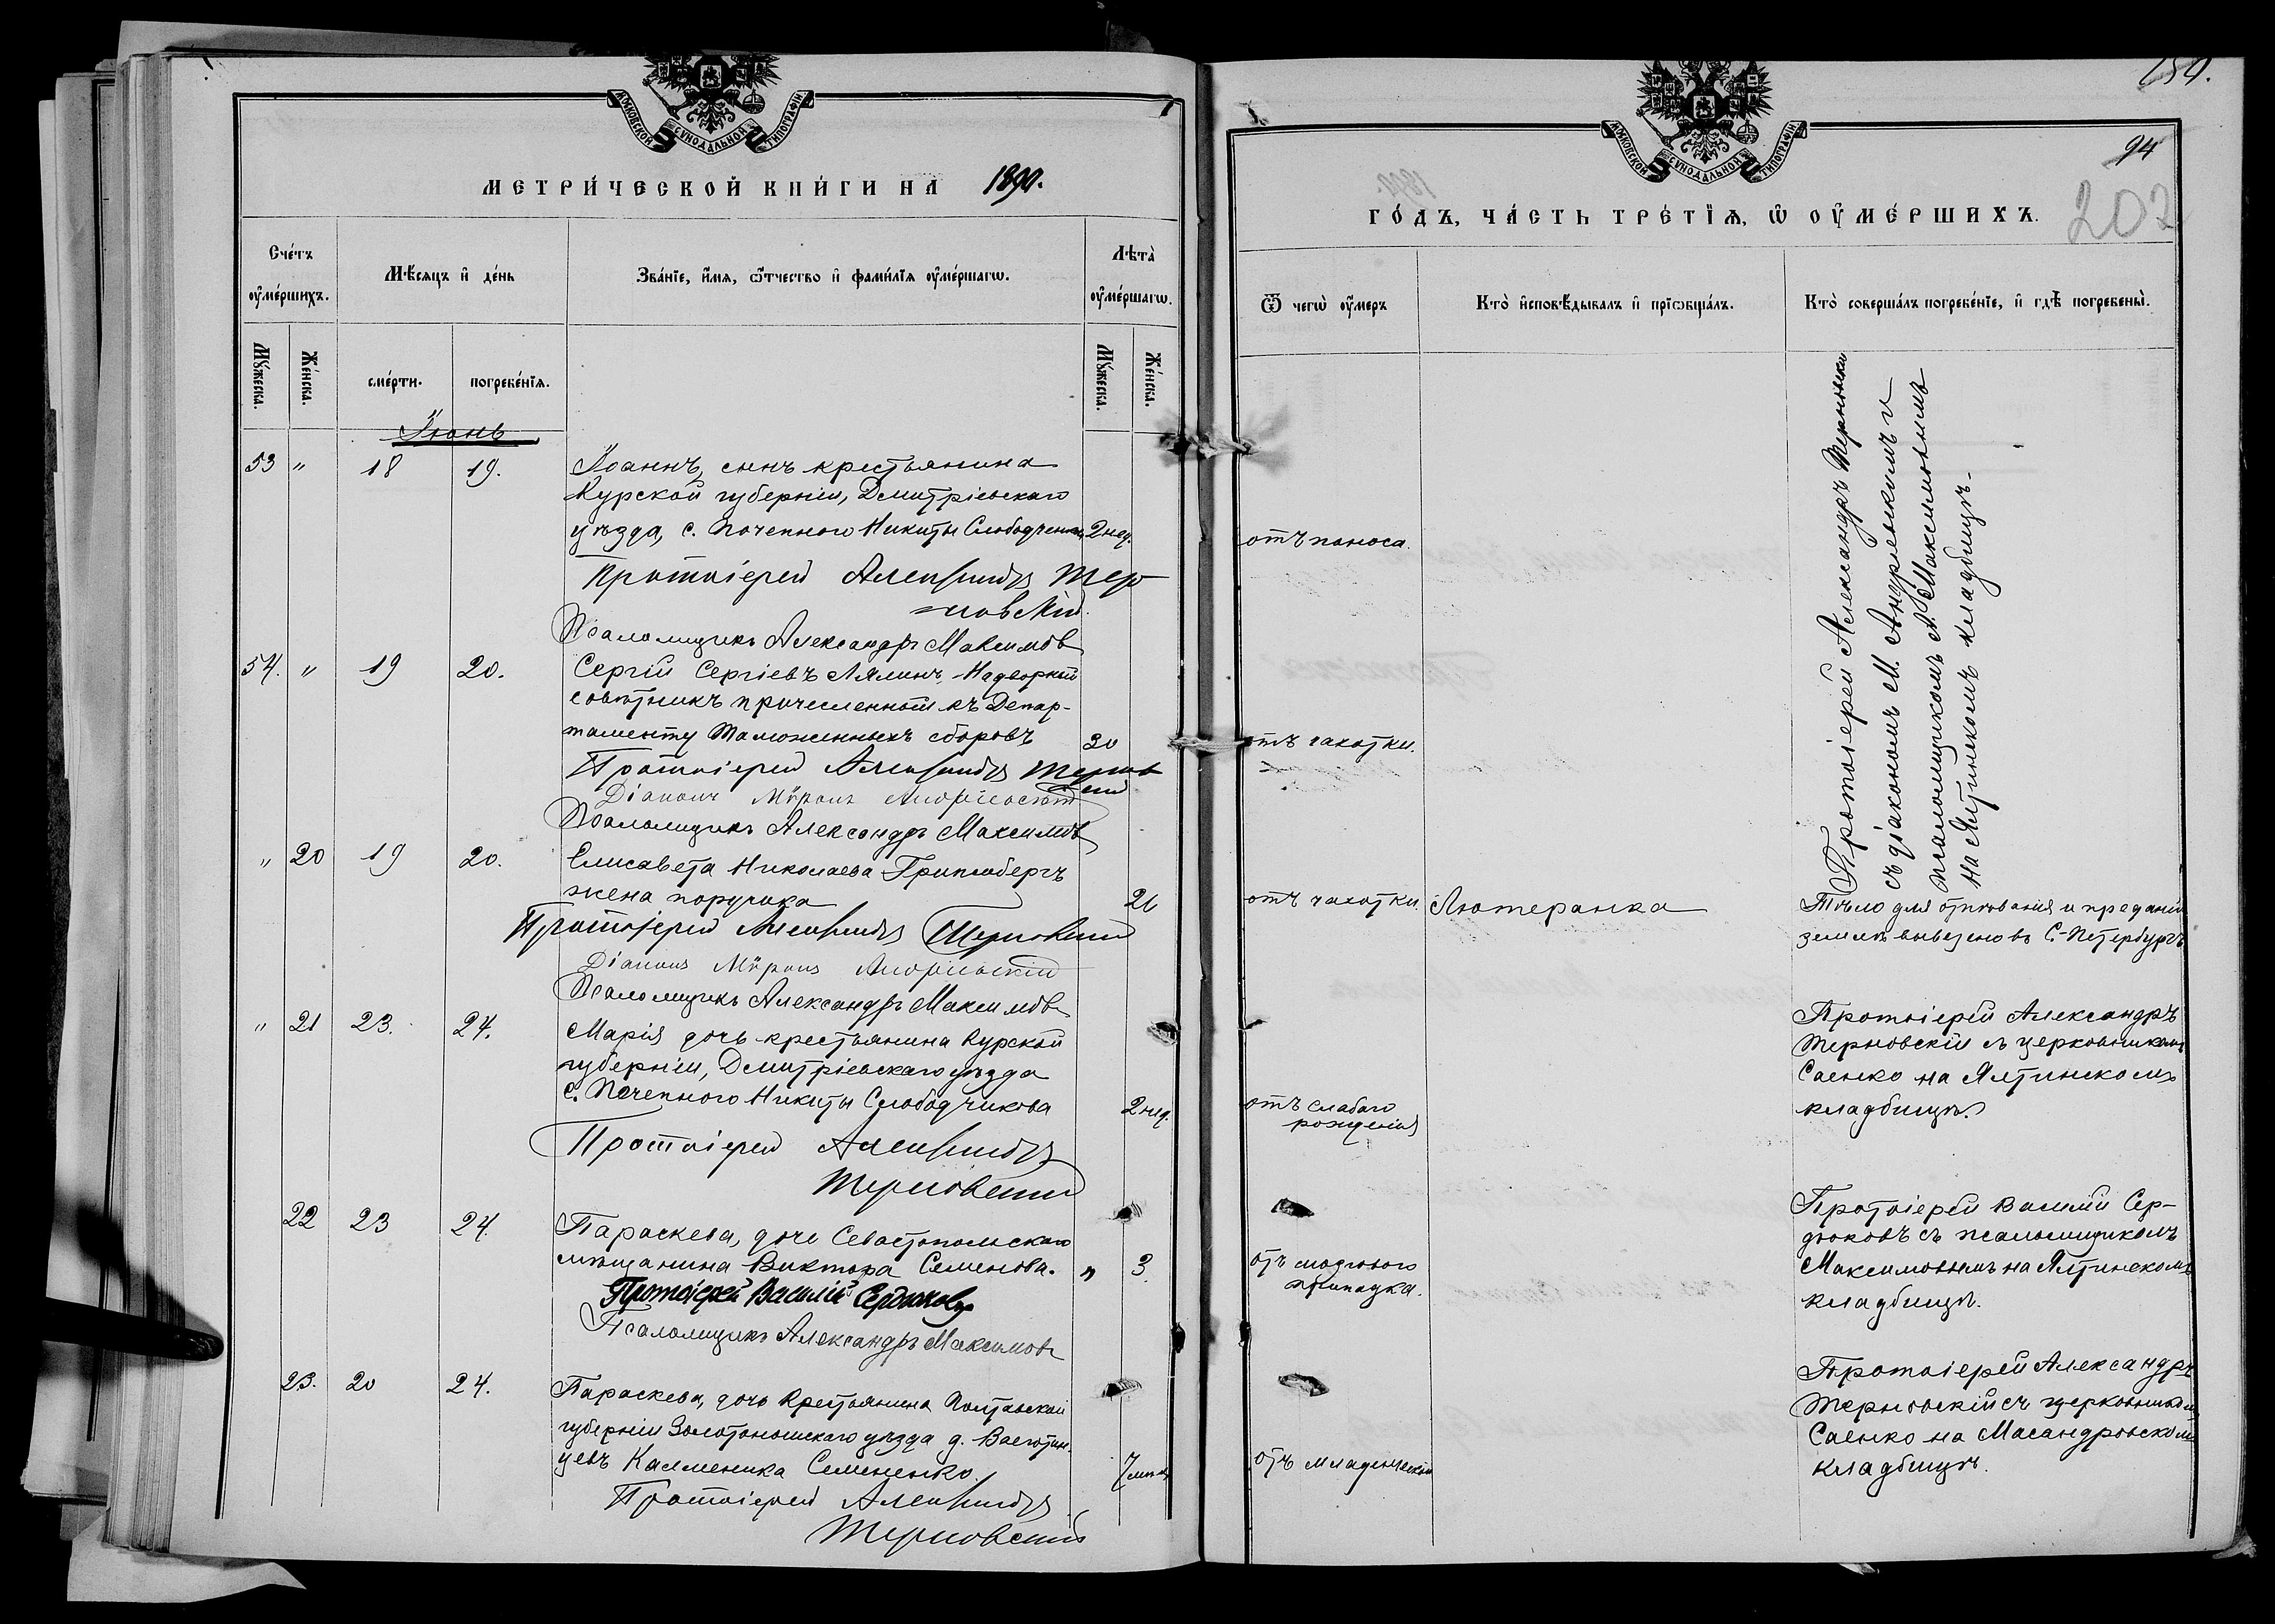 МОСКОВСКОЙ СУНОДАЛЬНОЙ ТИПОГРАФІИ
МЕТРИ́ЧЕСКОЙ КНИ́ГИ НА 1890.
Сче́тъ оу҆ме́ршихъ.
Мѣ́сяцъ и҆ де́нь
Зва́нїе, и҆́мя, ѻ҆́тчество и҆ фами́лїя оу҆ме́ршагѡ.
Лѣта̀ оу҆ме́ршагѡ.
Мꙋ́жеска.
Же́нска.
сме́рти.
погребе́нїя.
Мꙋ́жеска.
Же́нска.
Іюнь
53 " 18 19. Іоаннъ, сынъ крестьянина
Курской губерніи, Дмитріевскаго
уѣзда, с. Поченного Никиты 2 нед.
Протоіерей Александръ Тер-
новскій
Псаломщикъ Александръ Максимовъ
54. " 19 20. Сергій Сергіевъ Лялинъ, Надворный
совѣтникъ причисленный къ Депар-
таменту Таможенныхъ сборовъ 30
Протоіерей Александръ Терновскій
Діаконъ Мѵронъ Андріевскій
Псаломщикъ Александръ Максимовъ
" 20 19 20. Елисавета Николаева
жена поручика
Протоіерей Александръ Терновскій
Діаконъ Мѵронъ Андріевскій
Псаломщикъ Александръ Максимовъ
" 21 23. 24. Марія дочь крестьянина Курской
губерніи, Дмитріевскаго уѣзда
с. Поченного Никиты Слободчикова 2 нед.
Протоіерей Александръ
Терновскій
22 23 24. Параскева, дочь Севастопольскаго
мѣщанина Виктора Семенова. " 3.
Протоіерей Василій Сердюковъ
Псаломщикъ Александръ Максимовъ
23. 20 24. Параскева, дочь крестьянина Полтавской
губерніи Золотоношскаго уѣзда д.
Семененко.
Протоіерей Александръ
Терновскій
МОСКОВСКОЙ СУНОДАЛЬНОЙ ТИПОГРАФІИ
94
202
ГО́ДЪ, ЧА́СТЬ ТРЕ́ТЇѦ, Ѡ҆ ОУ҆МЕ́РШИХЪ.
Ѿ чегѡ̀ оу҆́меръ
Кто̀ и҆сповѣ́дывалъ и҆ прїѡбща́лъ.
Кто̀ соверша́лъ погребе́нїе, и҆ гдѣ̀ погребены̀.
отъ поноса.
отъ чахотки.
Протоіерей Александръ Терновскій
съ діакономъ М. Андріевскимъ и
псаломщикомъ А. Максимовымъ
на Ялтинскомъ кладбищѣ.
отъ чахотки. Лютеранка
Тѣло для отпѣванія и преданія
землѣ вывезено въ С.-Петербургъ
отъ слабаго
рожденія
Протоіерей Александръ
Терновскій съ церковникомъ
Саенко на Ялтинскомъ
кладбищѣ.
отъ мозгового
припадка.
Протоіерей Василій Сер-
дюковъ съ псаломщикомъ
Максимовымъ на Ялтинскомъ
кладбищѣ.
отъ младенческой
Протоіерей Александръ
Терновскій съ церковникомъ
Саенко на Масандровскомъ
кладбищѣ.